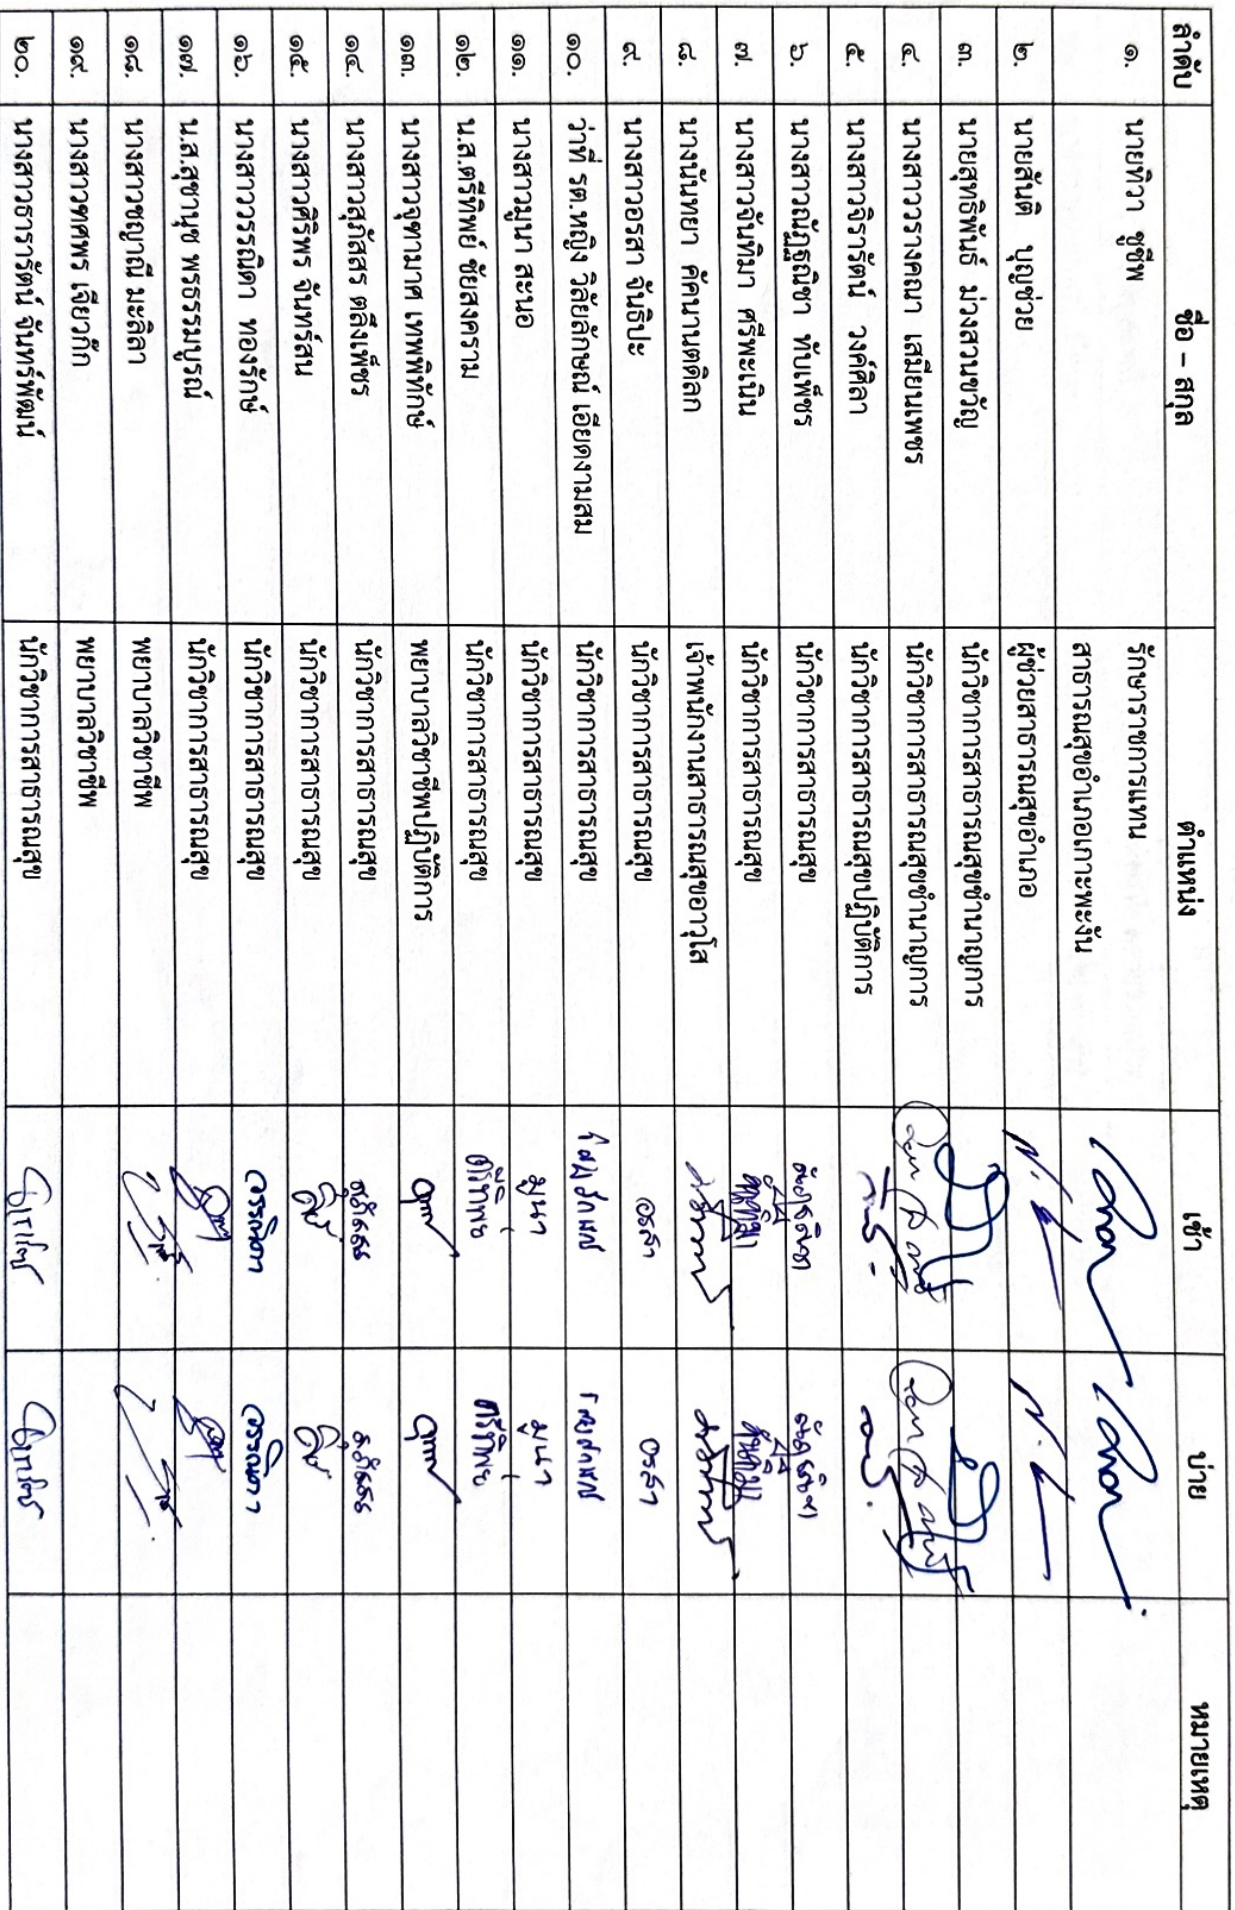 ลำดับ ชื่อ – สกุล ตำแหน่ง เช้า บ่าย หมายเหตุ
๑. นายทิวา ชูชีพ รักษาราชการแทน
สาธารณสุขอำเภอเกาะพะงัน
๒. นายสันติ บุญช่วย ผู้ช่วยสาธารณสุขอำเภอ
๓. นายสุทธิพันธ์ ม่วงสวนขวัญ นักวิชาการสาธารณสุขชำนาญการ
๔. นางสาววรางคณา เสมียนเพชร นักวิชาการสาธารณสุขชำนาญการ
๕. นางสาวจิรารัตน์ วงค์ศิลา นักวิชาการสาธารณสุขปฏิบัติการ
๖. นางสาวณัฏฐณิชา ทับเพ็ชร นักวิชาการสาธารณสุข
๗. นางสาวจันทิมา ศรีพะเนิน นักวิชาการสาธารณสุข จันทิมา จันทิมา
๘. นางนันทยา คัคนานตดิลก เจ้าพนักงานสาธารณสุขอาวุโส
๙. นางสาวอรสา จันธิปะ นักวิชาการสาธารณสุข อรสา อรสา
๑๐. ว่าที่ รต.หญิง วิลัยลักษณ์ เอียดงามสม นักวิชาการสาธารณสุข
๑๑. นางสาวมูนา สะนอ นักวิชาการสาธารณสุข มูนา มูนา
๑๒. น.ส.ตรีทิพย์ ชัยสงคราม นักวิชาการสาธารณสุข ตรีทิพย์ ตรีทิพย์
๑๓. นางสาวจุฑามาศ เทพพิทักษ์ พยาบาลวิชาชีพปฏิบัติการ
๑๔. นางสาวสุภัสสร ตลึงเพ็ชร นักวิชาการสาธารณสุข สุภัสสร สุภัสสร
๑๕. นางสาวศิริพร จันทร์สน นักวิชาการสาธารณสุข
๑๖. นางสาววรรณิดา ทองรักษ์ นักวิชาการสาธารณสุข วรรณิดา วรรณิดา
๑๗. น.ส.สุชานุช พรธรรมบูรณ์ นักวิชาการสาธารณสุข
๑๘. นางสาวชญาณี มะลิลา พยาบาลวิชาชีพ
๑๙. นางสาวทศพร เจียวก๊ก พยาบาลวิชาชีพ
๒๐. นางสาวธารารัตน์ จันทร์พัฒน์ นักวิชาการสาธารณสุข